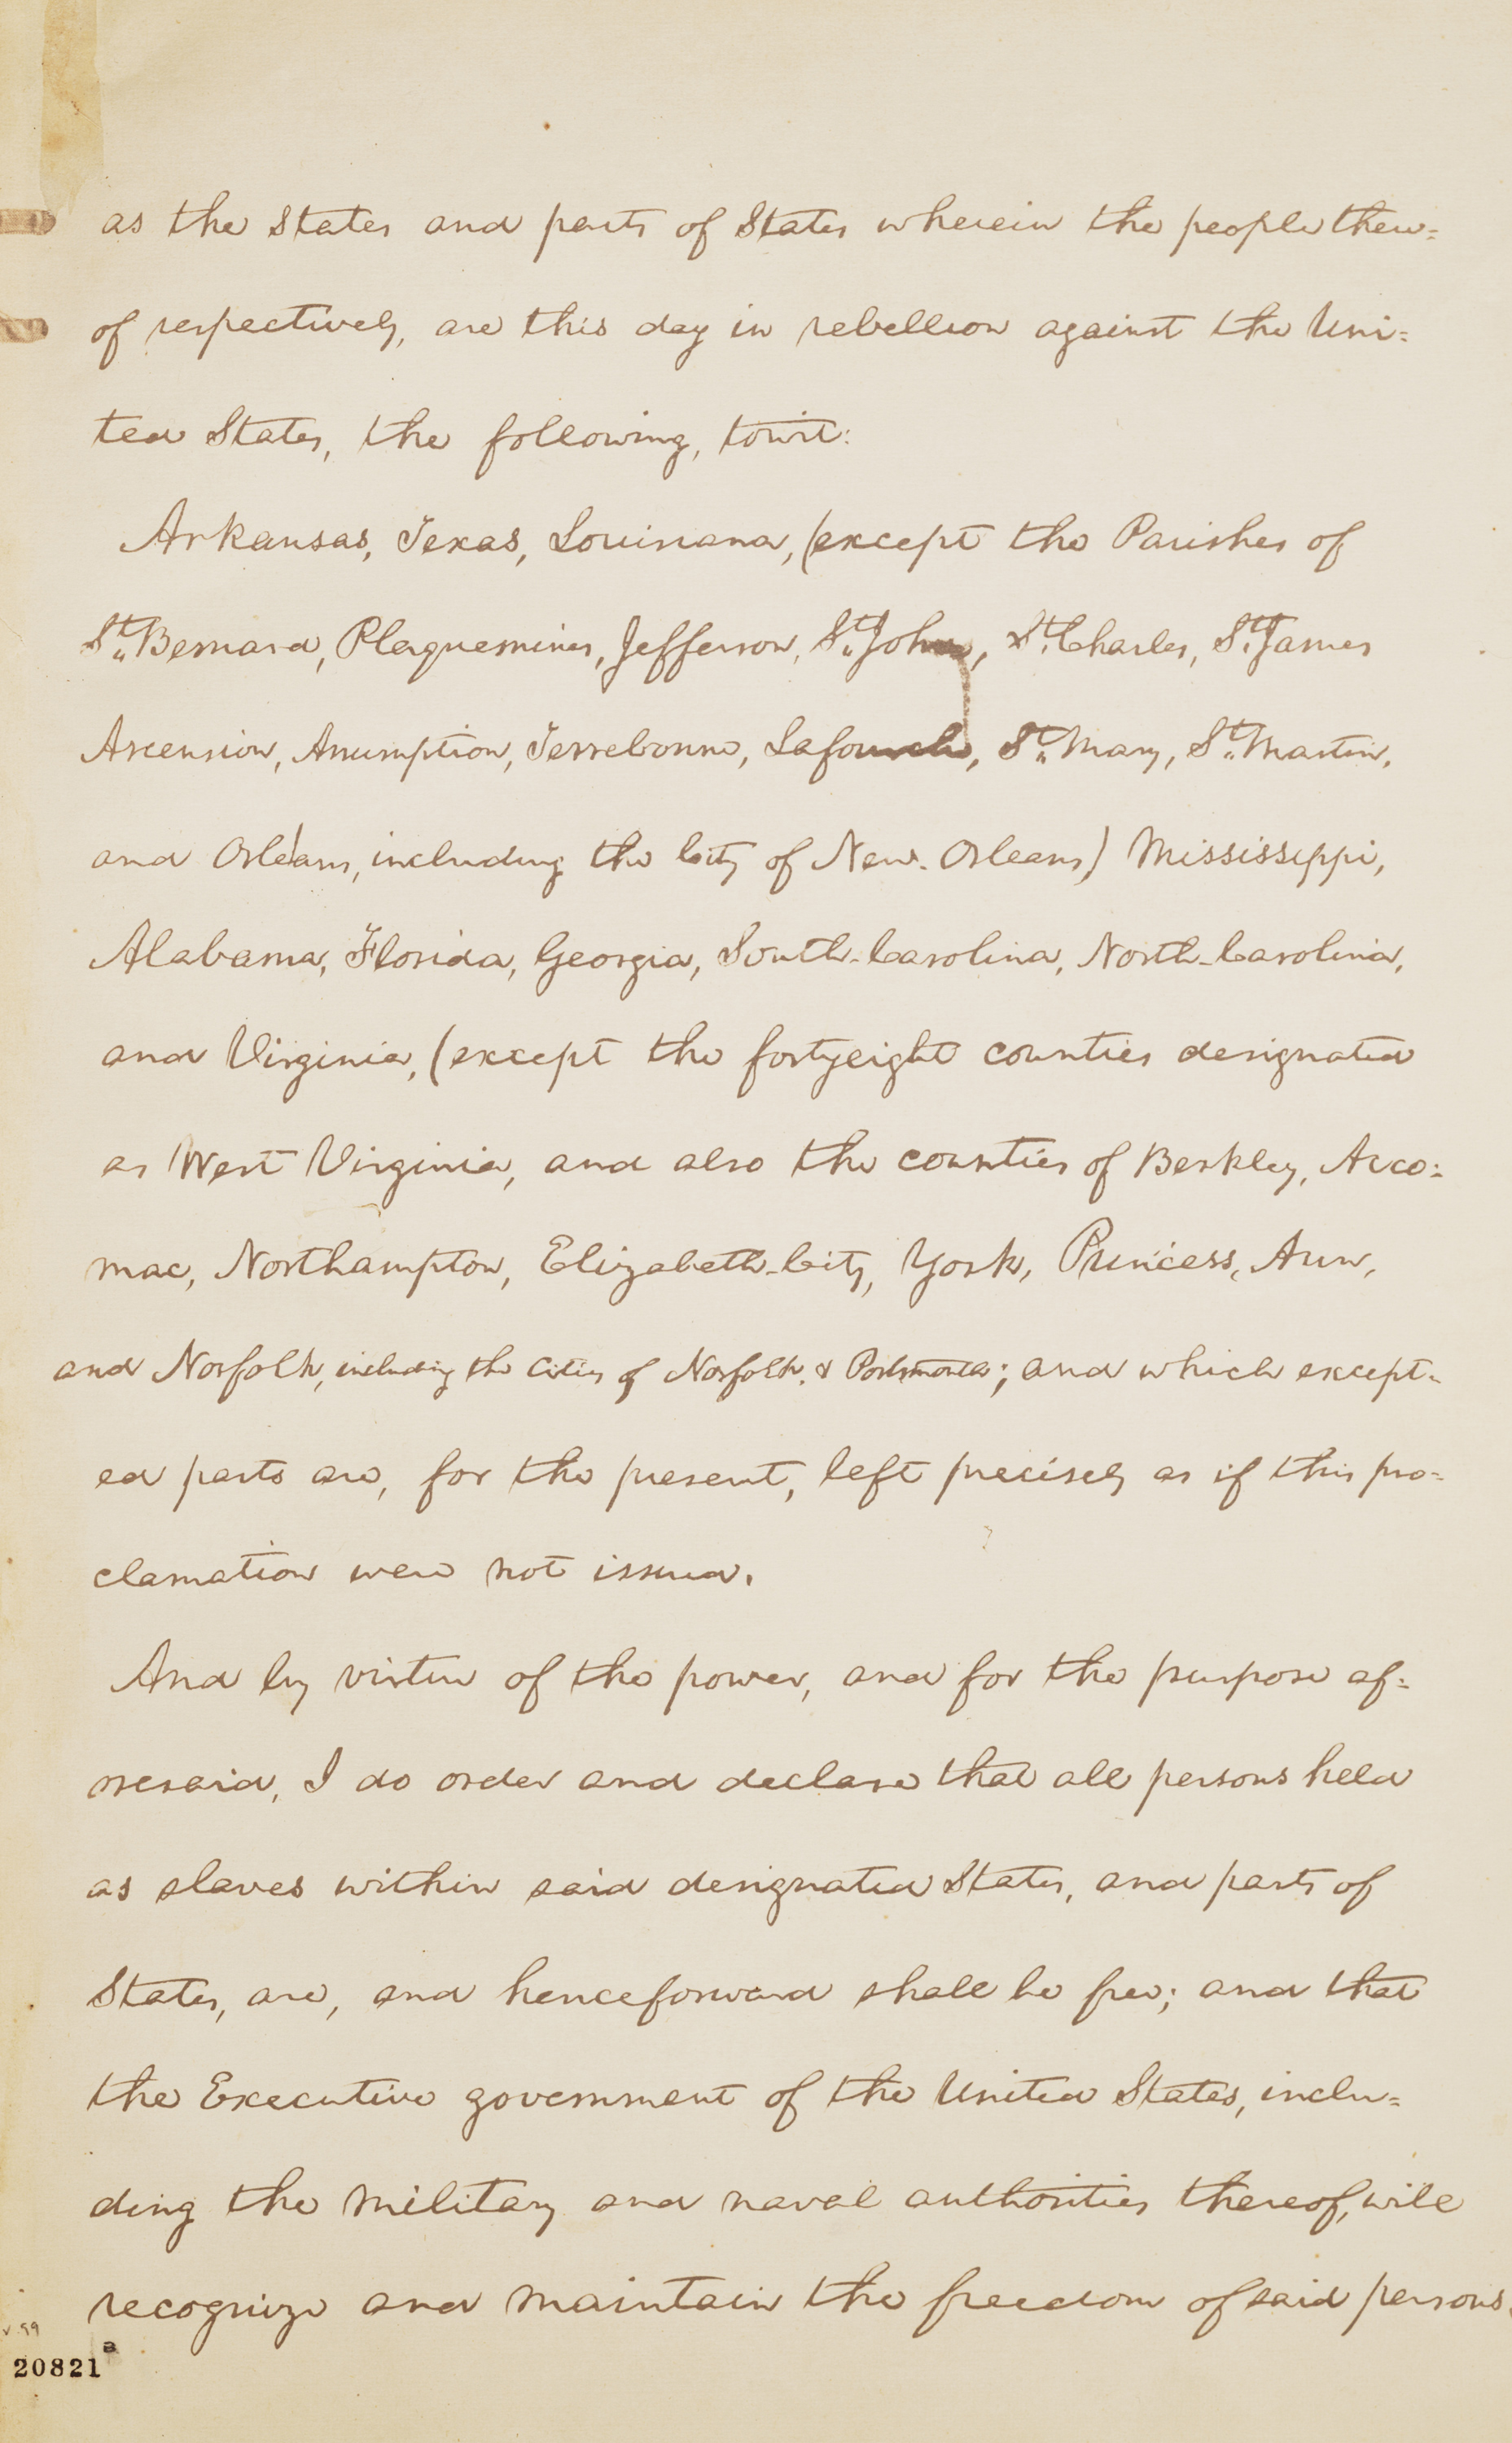 as the States and parts of States wherein the people there=
of respectively, are this day in rebellion against the Uni=
ted States, the following, towit:
Arkansas, Texas, Louisiana, (except the Parishes of
St. Bernard, Plaquemines, Jefferson, St. John, St. Charles, St. James
Ascension, Assumption, Terrebonne, Lafourche, St. Mary, St. Martin,
and Orleans, including the City of New-Orleans) Mississippi,
Alabama, Florida, Georgia, South-Carolina, North-Carolina,
and Virginia, (except the fortyeight counties designated
as West Virginia, and also the counties of Berkley, Acco=
mac, Northampton, Elizabeth-City, York, Princess, Ann,
and Norfolk, including the cities of Norfolk, & Portsmouth; and which except-
ed parts are, for the present, left precisely as if this pro=
clamation were not issued.
And by virtue of the power, and for the purpose af=
oresaid, I do order and declare that all persons held
as slaves within said designated States, and parts of
States, are, and henceforward shall be free; and that
the Executive government of the United States, inclu=
ding the military and naval authorities thereof, will
recognize and maintain the freedom of said persons.
v.99
20821